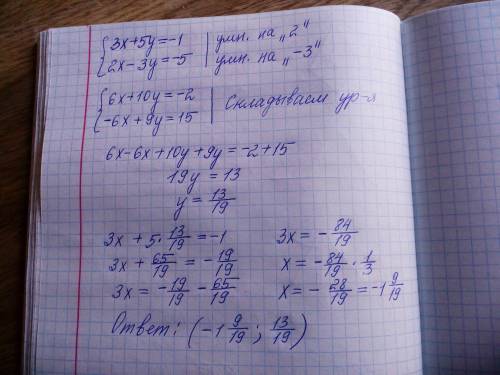 {3x+5y=-1 | умн. на „2"
{2x-3y=-5 | умн. на „-3"
{6x+10y=-2 | Складываем ур-я
{-6x+9y=15
6x-6x+10y+9y=-2+15
19y=13
y=13/19
3x+5·13/19=-1
3x+65/19=-19/19
3x=-19/19-65/19
3x=-84/19
x=-84/19·1/3
x=-28/19=-1 9/19
Ответ: (-1 9/19; 13/19)